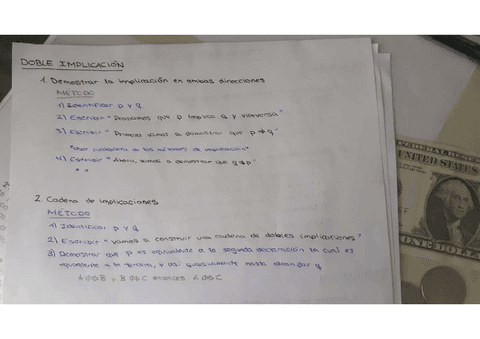 DOBLE IMPLICACIÓN
1. Demostrar la implicación en ambas direcciones
METODO
1) Identificar p y q
2) Escribir "Probamos que p implica q y viceversa"
3) Escribir "Primero vamos a demostrar que p → q"
"Usar cualquiera de los métodos de implicación"
4) Escribir "Ahora, vamos a demostrar que q → p"
" "
2. Cadena de implicaciones
METODO
1) Identificar p y q
2) Escribir "vamos a construir una cadena de dobles implicaciones"
3) Demostrar que p es equivalente a la segunda declaración la cual es
equivalente a la tercera, y así sucesivamente hasta alcanzar q
A ⇔ B y B ⇔ C entonces A ⇔ C
UNITED STATES
ONE DOLLAR